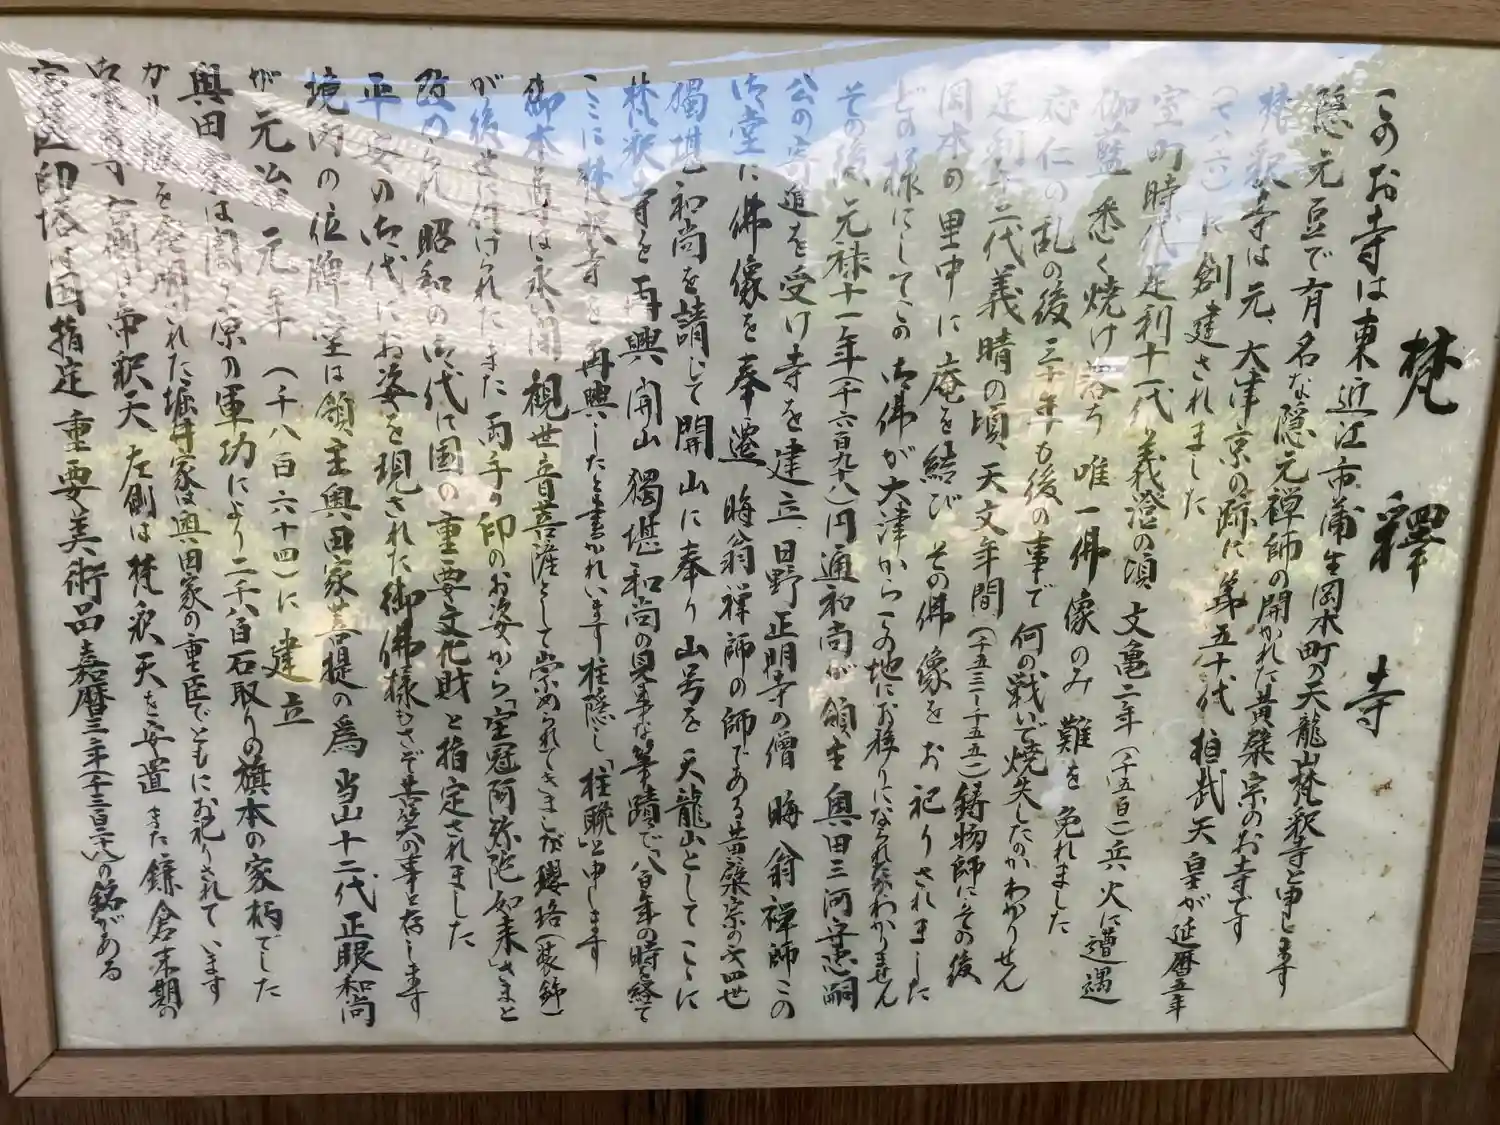 梵釋寺
このお寺は東近江市蒲生岡本町の天龍山梵釈寺と申します
隠元豆で有名な隠元禅師の開かれた黄檗宗のお寺です
梵釈寺は元、大津京の跡に第五十代 桓武天皇が延暦五年
(七八六)に創建されました
室町時代足利十一代義澄の頃 文亀二年(千五百二)兵火に遭遇
伽藍悉く焼け落ち 唯一佛像のみ難を免れました
応仁の乱の後 三十年も後の事で何の戦いで焼失したのかわかりません
足利十二代義晴の頃、天文年間(千五三二-千五五二)鋳物師にその後
岡本の里中に庵を結び その佛像をお祀りされました
どの様にしてこの御佛が大津から この地にお移りになられたかわかりません
その後 元禄十一年(千六百九八)円通和尚が領主奥田三河守忠嗣
公の寄進を受け寺を建立、日野正明寺の僧 晦翁禅師この
御堂に佛像を奉遷 晦翁禅師の師である黄檗宗の 四世
獨堪和尚を請じて開山に奉り山号を天龍山としてここに
梵釈寺を再興 開山獨堪和尚の見事な筆蹟で、八百年の時を経て
ここに梵釈寺を再興したと書かれています 柱隠し「柱聯」と申します
御本尊は永い間 観世音菩薩として崇められてきましたが瓔珞(装飾)
が後世に付けられたまた 両手の印のお姿から「宝冠阿弥陀如来」さまと
改められ 昭和の御代に国の重要文化財と指定されました
平安の御代にお姿を現された御佛様もさぞ苦笑の事と存じます
境内の位牌堂は領主奥田家菩提の為 当山十二代正眼和尚
が元治元年(千八百六十四)に建立
奥田家は関ヶ原の軍功により二千八百石取りの旗本の家柄でした
された堀井家は奥田家の重臣でともにお祀りされています
右側は帝釈天 左側は梵釈天を安置 また鎌倉末期の
宝篋印塔は国指定重要美術品 嘉暦三年(千三百二八)の銘がある